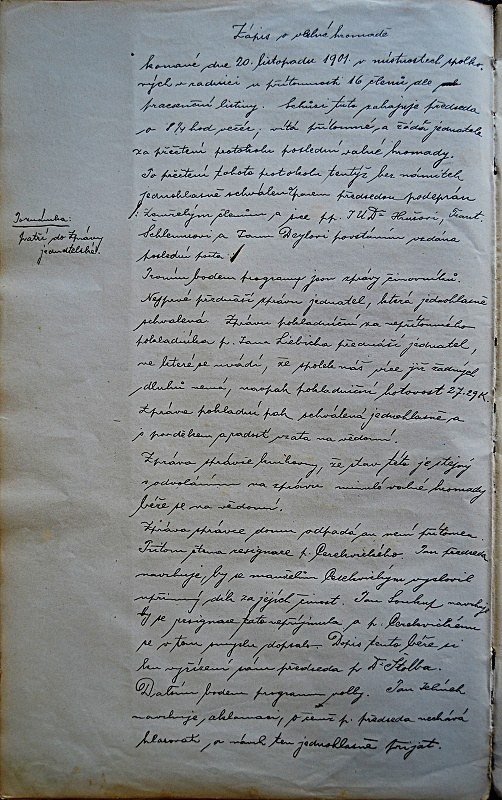 Zápis o valné hromadě
konané dne 20. listopadu 1901 v místnostech spolko-
vých v radnici u přítomnosti 16 členů dle
pracenční listiny. Schůzi tuto zahajuje předseda
o 8¼ hod večer, vítá přítomné, a žádá jednatele
za přečtení protokolu poslední valné hromady.
Po přečtení tohoto protokolu tentýž bez námitek
jednohlasně schválen panem předsedou podepsán
Zemřelým členům a sice pp. JUDr Husovi, Frant.
Schleussovi a Janu Deylovi povstáním vzdána
poslední pocta
Poznámka:
patří do zprávy
jednatelské.
Prvním bodem programu jsou zprávy činovníků.
Nejprvé přednáší zprávu jednatel, která jednohlasně
schválena. Zprávu pokladniční za nepřítomného
pokladníka p. Jana Liebicha přednáší jednatel,
ve které se uvádí, že spolek náš více již žádných
dluhů nemá, naopak pokladniční hotovost 27.29 K.
Zpráva pokladní pak schválena jednohlasně a
s povděkem a radostí vzata na vědomí.
Zpráva správce knihovny, že stav této je stejný
s odvoláním na zprávu minulé valné hromady
béře se na vědomí.
Zpráva správce domu odpadá an není přítomen.
Přitom čtena resignace p. Čerchovického. Pan předseda
navrhuje, by se manželům Čerchovickým vyslovil
upřímný dík za jejich činost. Pan Soukup navrhuje
by se resignace tato nepřijmula a p. Čerchovickému
se v tom smyslu dopsalo. Dopis tento béře si
ku vyřízení sám předseda p. Dr. Stolba.
Dalším bodem programu volby. Pan Jelínek
navrhuje, aklamaci, o čemž p. předseda nechává
hlasovati, a návrh ten jednohlasně přijat.